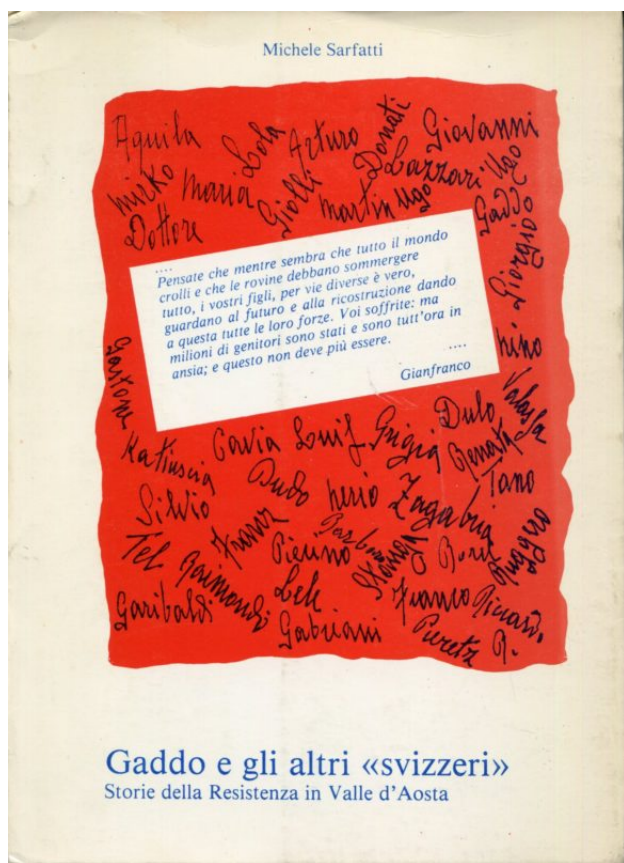 Michele Sarfatti
Aquila
Mirko
Maria
Lola
Arturo
Donati
Giovanni
Dottore
Giolli
Martin
Ugo
Lazzari
Ugo
Gaddo
Giorgio
....
Pensate che mentre sembra che tutto il mondo
crolli e che le rovine debbano sommergere
tutto, i vostri figli, per vie diverse è vero,
guardano al futuro e alla ricostruzione dando
a questa tutte le loro forze. Voi soffrite: ma
milioni di genitori sono stati e sono tutt'ora in
ansia; e questo non deve più essere.
....
Gianfranco
Gastone
Nino
Katiuscia
Cavia
Luif
Grigia
Dulo
Renata
Silvio
Dudo
Nerio
Zagabria
Tano
Tel
Franz
Picino
Ruggero
Garibaldi
Raimondi
Lele
Gabriani
Franco
Riccardo
R.
Gaddo e gli altri «svizzeri»
Storie della Resistenza in Valle d'Aosta